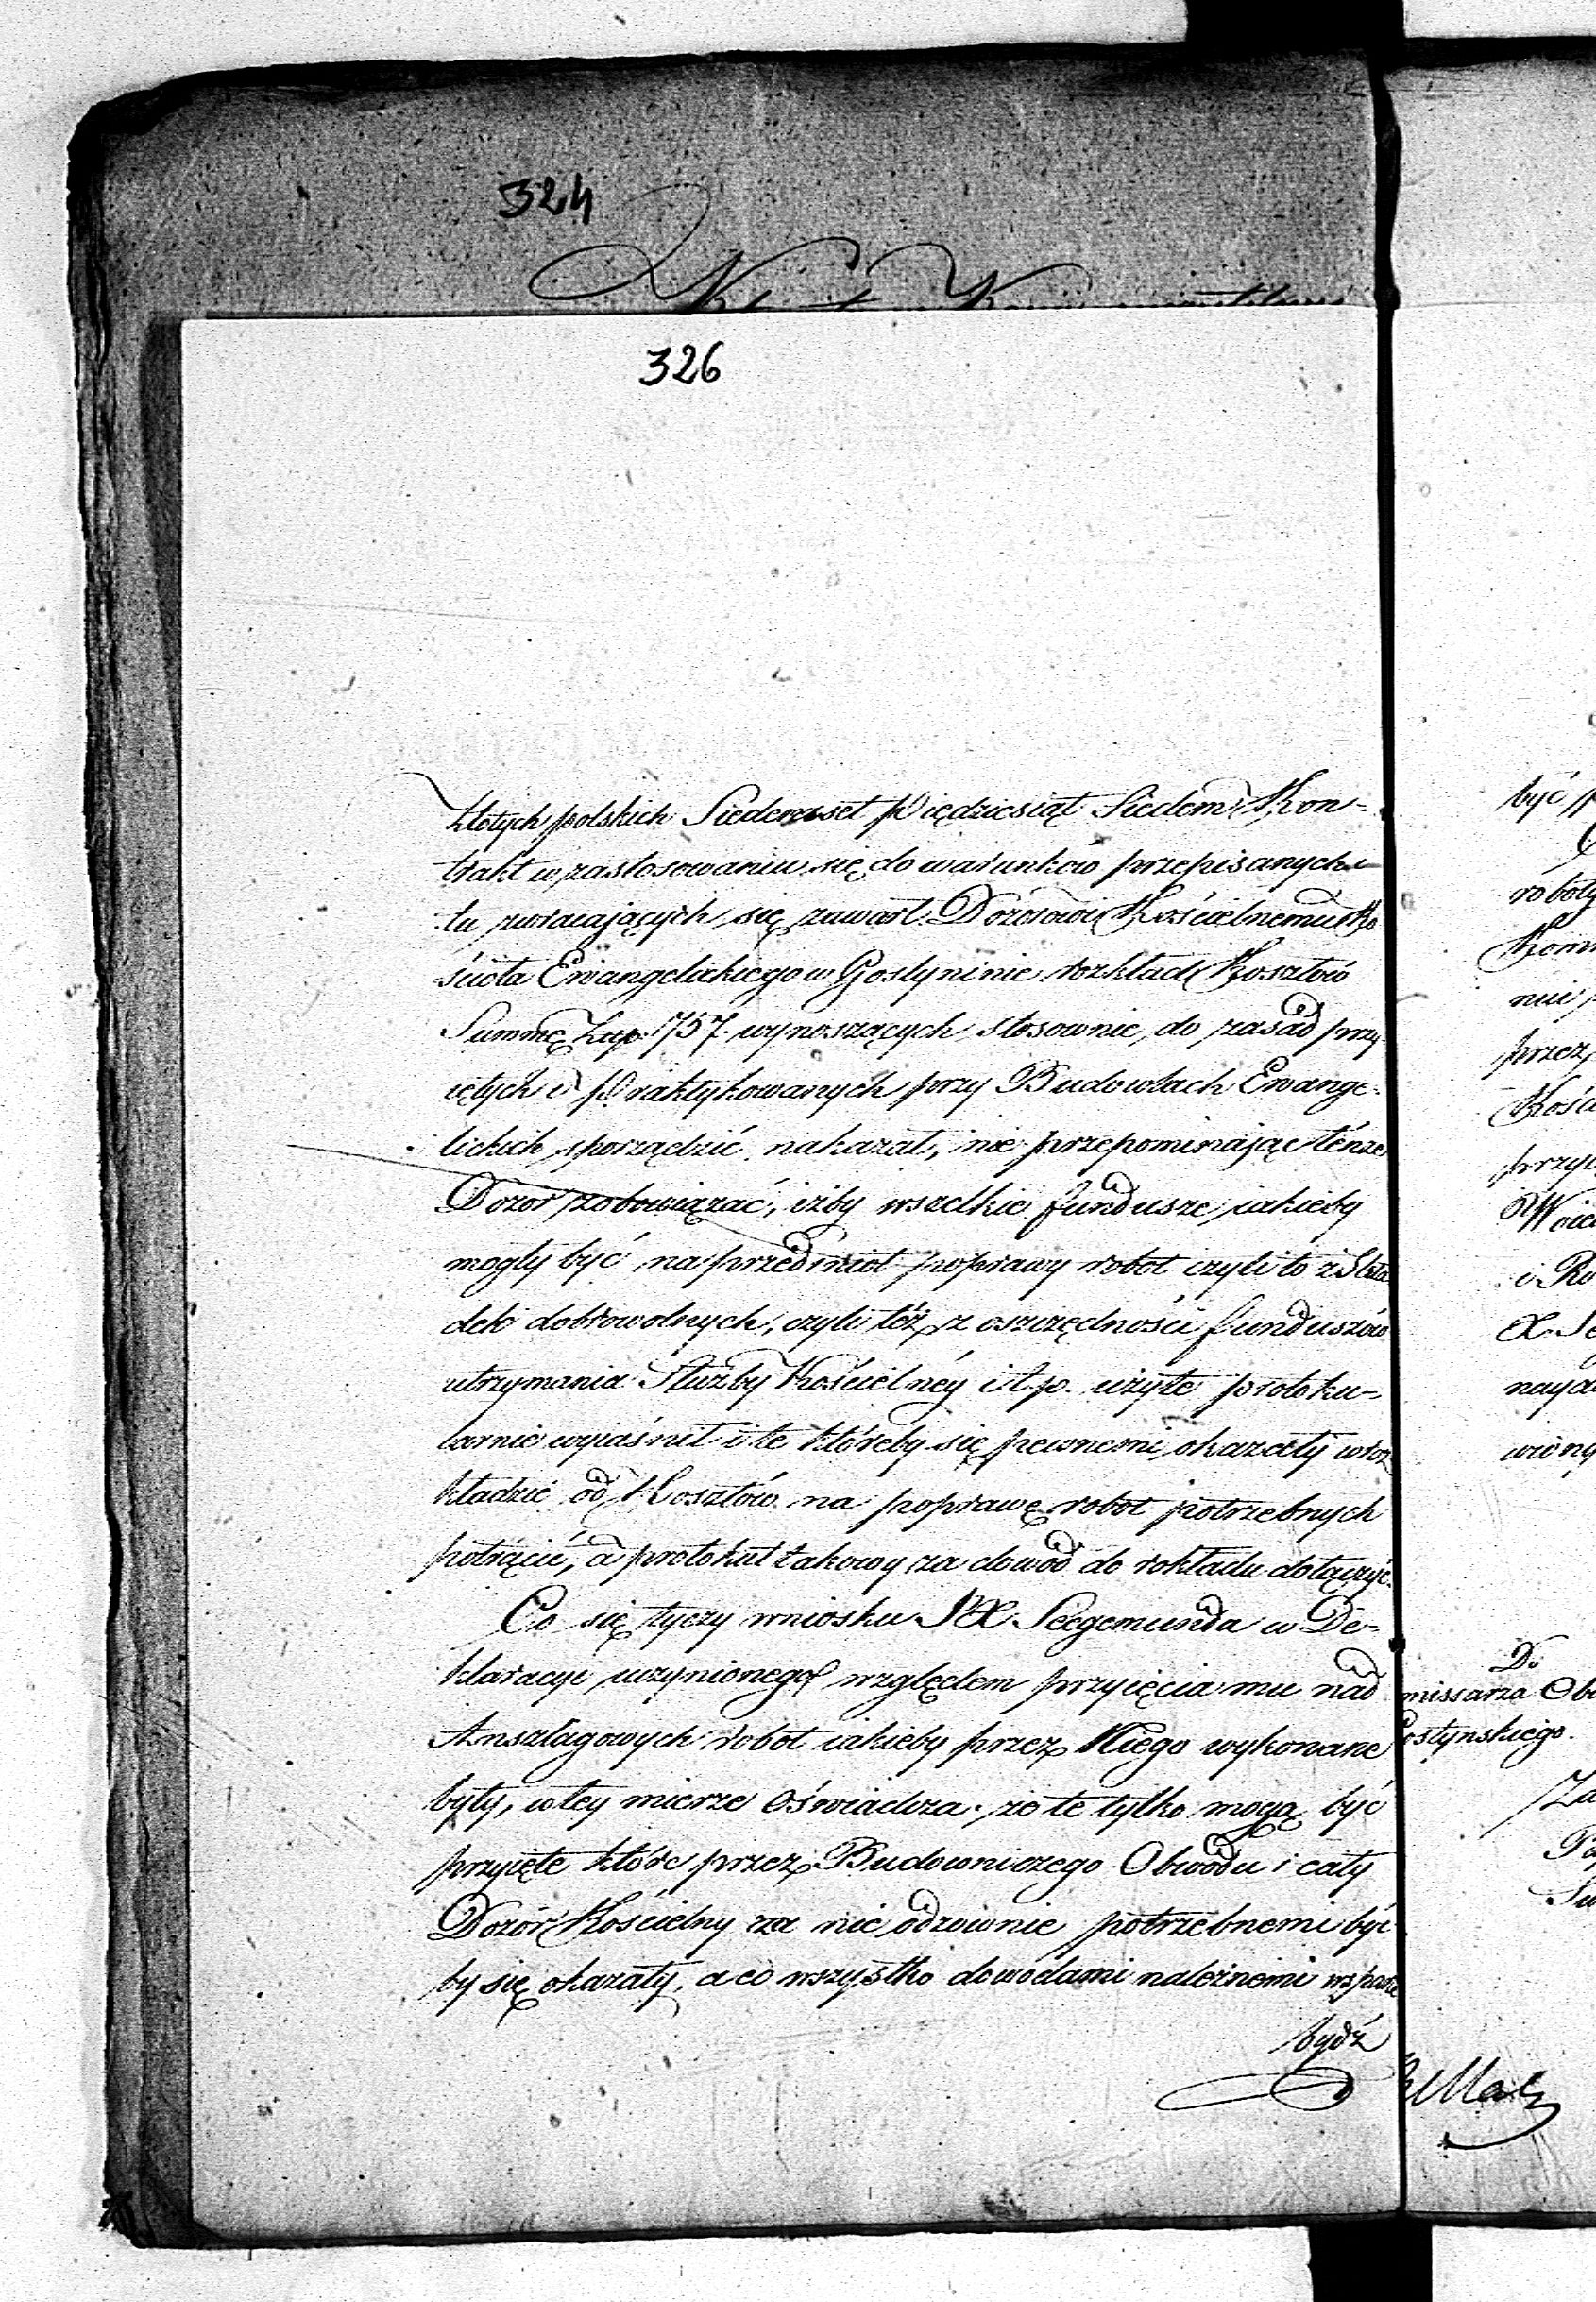 324
326
złotych polskich Siedemset Pięćdziesiąt Siedem Kon=
trakt w zastosowaniu się do warunków przepisanych
tu zwracających się zawarł. Dozorowi Kościelnemu Ko
ścioła Ewangelickiego w Gostyninie rozkład Kosztów
Summę Złp. 757. wynoszących stosownie do zasad przy
iętych i Praktykowanych przy Budowlach Ewange=
lickich sporządzić nakazał, nie przepominając tenże
Dozór zobowiązać, iżby wszelkie fundusze iakieby
mogły być na przedmiot poprawy robot czyli to z Skła
dek dobrowolnych, czyli też z oszczędności funduszów
utrzymania Służby Kościelnéy i t. p. użyte protoku=
larnie wyiaśnił i te któreby się pewnemi okazały w roz
kładzie od Kosztów na poprawę robot potrzebnych
potrącić, a protokuł takowy za dowód do rokładu dołączyć.
Co się tyczy wniosku JX. Seegemunda w De=
klaracyi uczynionego względem przyięcia mu nad
Anszlagowych robot iakieby przez Niego wykonane
były, w tey mierze Oświadcza. że te tylko mogą być
przyięte które przez Budowniczego Obwodu i cały
Dozór Kościelny za nie odzownie potrzebnemi być
by się okazały, a co wszystko dowodami należnemi wsparte
bydź
być
roboty
przez
Do
missarza Ob
ostynskiego.